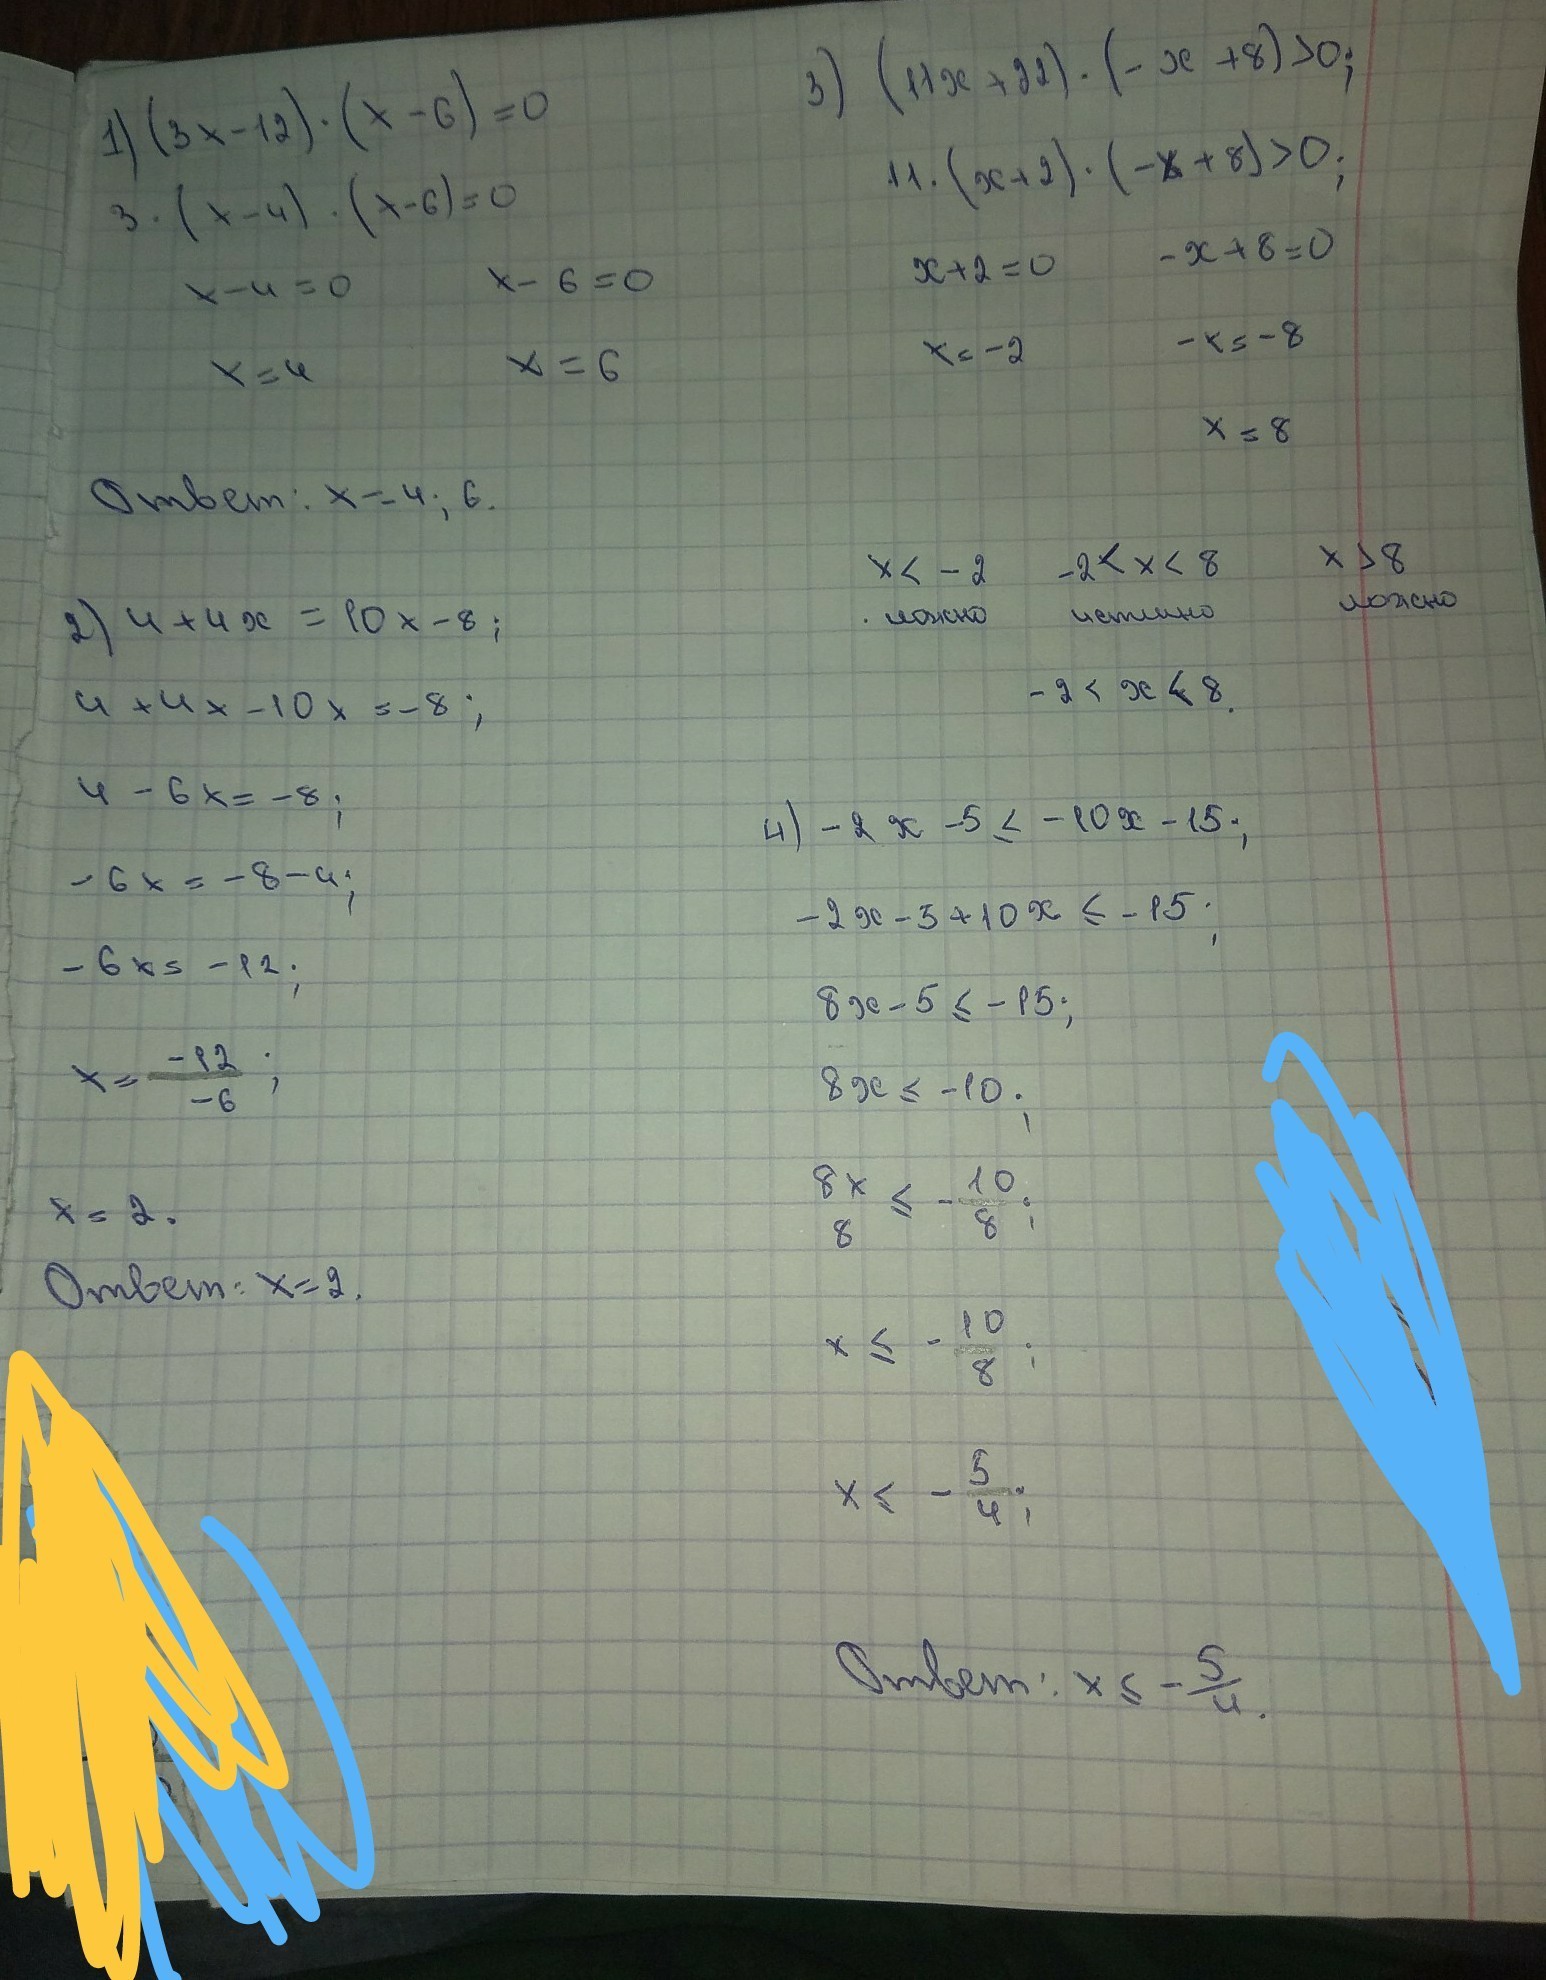 1) (3x-12)·(x-6)=0
3·(x-4)·(x-6)=0
x-4=0 x-6=0
x=4 x=6
Ответ: x=4; 6.
2) 4+4x=10x-8;
4+4x-10x=-8;
4-6x=-8;
-6x=-8-4;
-6x=-12;
x=-12/-6;
x=2.
Ответ: x=2.
3) (11x+22)·(-x+8)>0;
11·(x+2)·(-x+8)>0;
x+2=0 -x+8=0
x=-2 -x=-8
x=8
x<-2 -2<x<8 x>8
ложно истинно ложно
-2<x<8.
4) -2x-5≤-10x-15;
-2x-5+10x≤-15;
8x-5≤-15;
8x≤-10;
8x/8≤-10/8;
x≤-10/8;
x≤-5/4;
Ответ: x≤-5/4.